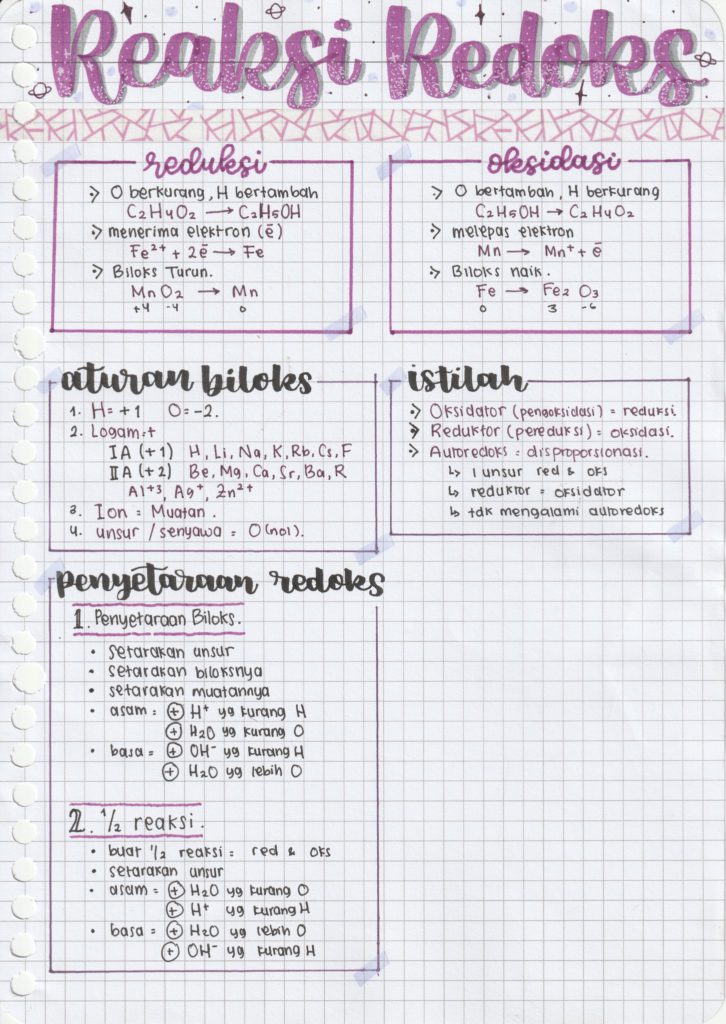 Reaksi Redoks
reduksi
O berkurang, H bertambah
C2H4O2 → C2H5OH
menerima elektron (ē)
Fe²⁺ + 2ē → Fe
Biloks Turun.
MnO2 → Mn
+4 -4 0
oksidasi
O bertambah, H berkurang
C2H5OH → C2H4O2
melepas elektron
Mn → Mn⁺ + ē
Biloks naik.
Fe → Fe2 O3
0 3 -6
aturan biloks
1. H = +1 O = -2.
2. Logam = +
IA (+1) H, Li, Na, K, Rb, Cs, F
IIA (+2) Be, Mg, Ca, Sr, Ba, R
Al⁺³, Ag⁺, Zn²⁺
3. Ion = Muatan.
4. unsur / senyawa = O (nol).
istilah
Oksidator (pengoksidasi) = reduksi.
Reduktor (pereduksi) = oksidasi.
Autoredoks = disproporsionasi.
↳ 1 unsur red & oks
↳ reduktor = oksidator
↳ tdk mengalami autoredoks
penyetaraan redoks
1. Penyetaraan Biloks.
• setarakan unsur
• setarakan biloksnya
• setarakan muatannya
• asam = ⊕ H⁺ yg kurang H
⊕ H2O yg kurang O
• basa = ⊕ OH⁻ yg kurang H
⊕ H2O yg lebih O
2. ½ reaksi.
• buat ½ reaksi = red & oks
• setarakan unsur
• asam = ⊕ H2O yg kurang O
⊕ H⁺ yg kurang H
• basa = ⊕ H2O yg lebih O
⊕ OH⁻ yg kurang H